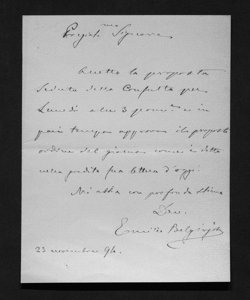 Pregiat.mo Signore
Accetto la proposta
seduta della Consulta per
Lunedì alle 3 pom. e in
pari tempo approvo il proposto
ordine del giorno
nella sua lettera d'oggi.
Mi abbia con profonda stima
Dev.
Emilio Belgiojoso
23 novembre 94.